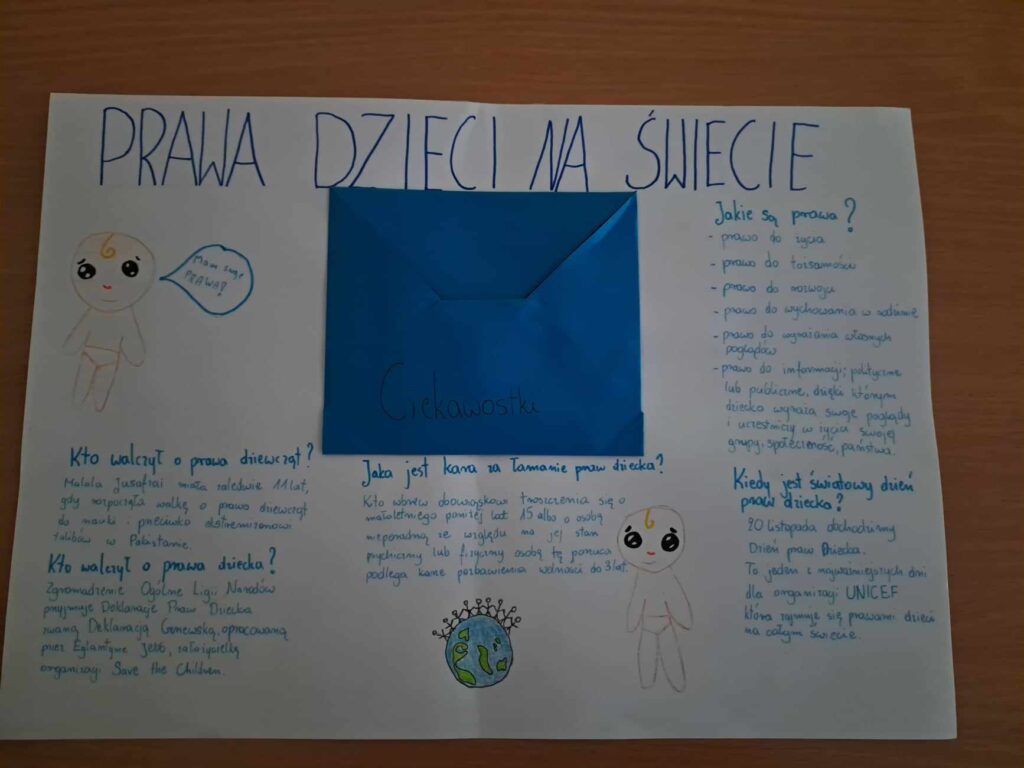 PRAWA DZIECI NA ŚWIECIE
Mam swoje
PRAWA!
Ciekawostki
Jakie są prawa?
- prawo do życia
- prawo do tożsamości
- prawo do rozwoju
- prawo do wychowania w rodzinie
- prawo do wyrażania własnych
poglądów
- prawo do informacji; polityczne
lub publiczne, dzięki którym
dziecko wyraża swoje poglądy
i uczestniczy w życiu swojej
grupy, społeczność, państwa.
Kto walczył o prawa dziewcząt?
Malala Jusafzai miała zaledwie 11 lat,
gdy rozpoczęła walkę o prawo dziewcząt
do nauki i przeciwko ekstremizmowi
talibów w Pakistanie.
Kto walczył o prawa dziecka?
Zgromadzenie Ogólne Ligii Narodów
przyjmuje Deklarację Praw Dziecka
zwaną Deklaracją Genewską, opracowaną
przez Eglantyne Jebb, założycielkę
organizacji Save the Children.
Jaka jest kara za łamanie praw dziecka?
Kto wbrew obowiązkowi troszczenia się o
małoletniego poniżej lat 15 albo o osobę
nieporadną ze względu na jej stan
psychiczny lub fizyczny osobę tę porzuca
podlega karze pozbawienia wolności do 3 lat.
Kiedy jest światowy dzień
praw dziecka?
20 listopada obchodzimy
Dzień praw Dziecka.
To jeden z najważniejszych dni
dla organizacji UNICEF
która zajmuje się prawami dzieci
na całym świecie.